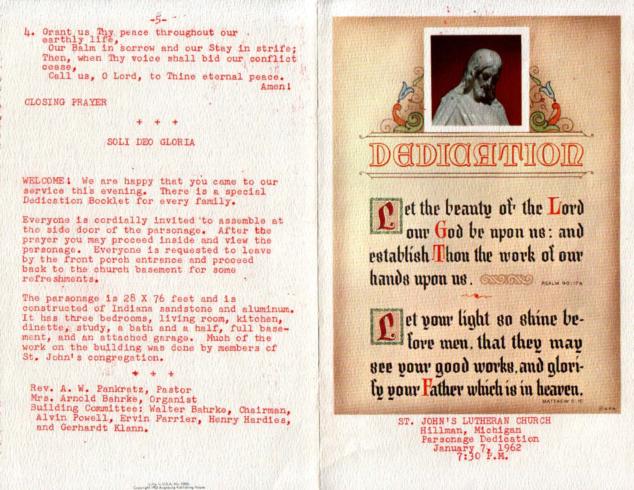 -5-
4. Grant us Thy peace throughout our
earthly life,
Our Balm in sorrow and our Stay in strife;
Then, when Thy voice shall bid our conflict
cease,
Call us, O Lord, to Thine eternal peace.
Amen!
CLOSING PRAYER
+ + +
SOLI DEO GLORIA
WELCOME! We are happy that you came to our
service this evening. There is a special
Dedication Booklet for every family.
Everyone is cordially invited to assemble at
the side door of the parsonage. After the
prayer you may proceed inside and view the
parsonage. Everyone is requested to leave
by the front porch entrance and proceed
back to the church basement for some
refreshments.
The parsonage is 28 X 76 feet and is
constructed of Indiana sandstone and aluminum.
It has three bedrooms, living room, kitchen,
dinette, study, a bath and a half, full base-
ment, and an attached garage. Much of the
work on the building was done by members of
St. John's congregation.
+ + +
Rev. A. W. Pankratz, Pastor
Mrs. Arnold Bahrke, Organist
Building Committee: Walter Bahrke, Chairman,
Alvin Powell, Ervin Farrier, Henry Hardies,
and Gerhardt Klann.
DEDICATION
Let the beauty of the Lord
our God be upon us: and
establish Thou the work of our
hands upon us.
PSALM 90:17A
Let your light so shine be-
fore men, that they may
see your good works, and glori-
fy your Father which is in heaven.
MATTHEW 5:16
ST. JOHN'S LUTHERAN CHURCH
Hillman, Michigan
Parsonage Dedication
January 7, 1962
7:30 P.M.